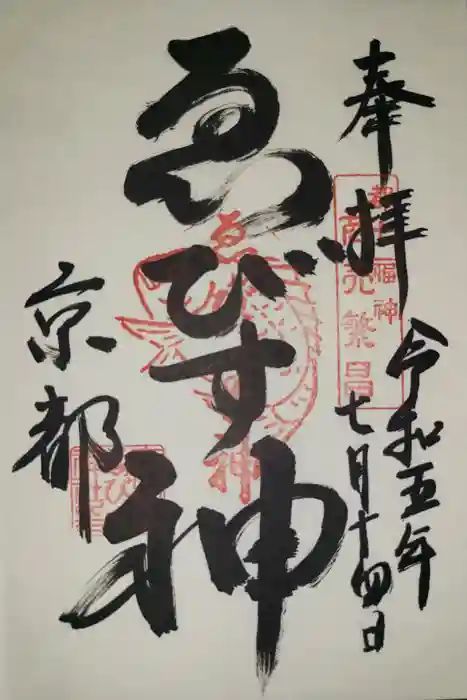 奉拝
都福神
商売繁昌
令和五年
七月十四日
ゑびす神
ゑびす神
京都